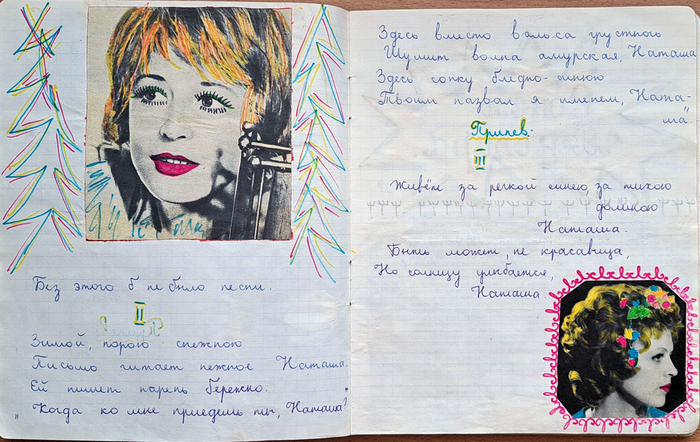 Без этого б не было песни.
II
Зимой, порою снежною
Письмо читает нежное Наташа.
Ей пишет парень бережно.
"Когда ко мне приедешь ты, Наташа?"
Здесь вместо вальса грустного
Шумит волна амурская, Наташа
Здесь сопку бледно-синюю
Твоим назвал я именем, Ната-
ша"
Припев.
III
Живёт за речкой синею, за тихою
долиною
Наташа.
Быть может, не красавица,
Но солнцу улыбается,
Наташа.